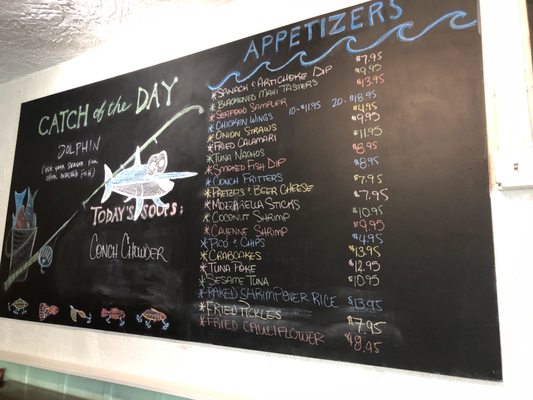 CATCH of the DAY
DOLPHIN
(ASK YOUR SERVER FOR
OTHER AVAILABLE FISH)
TODAY'S SOUPS:
CONCH CHOWDER
APPETIZERS
*SPINACH & ARTICHOKE DIP $7.95
*BLACKENED MAHI TASTERS $9.95
*SEAFOOD SAMPLER $13.95
*CHICKEN WINGS 10-$11.95 20-$18.95
*ONION STRAWS $4.95
*FRIED CALAMARI $9.95
*TUNA NACHOS $11.95
*SMOKED FISH DIP $8.95
*CONCH FRITTERS $8.95
*PRETZELS & BEER CHEESE $7.95
*MOZZARELLA STICKS $7.95
*COCONUT SHRIMP $10.95
*CAYENNE SHRIMP $9.95
*PICO & CHIPS $4.95
*CRABCAKES $13.95
*TUNA POKE $12.95
*SESAME TUNA $10.95
*BAKED SHRIMP OVER RICE $13.95
*FRIED PICKLES $7.95
*FRIED CAULIFLOWER $8.95